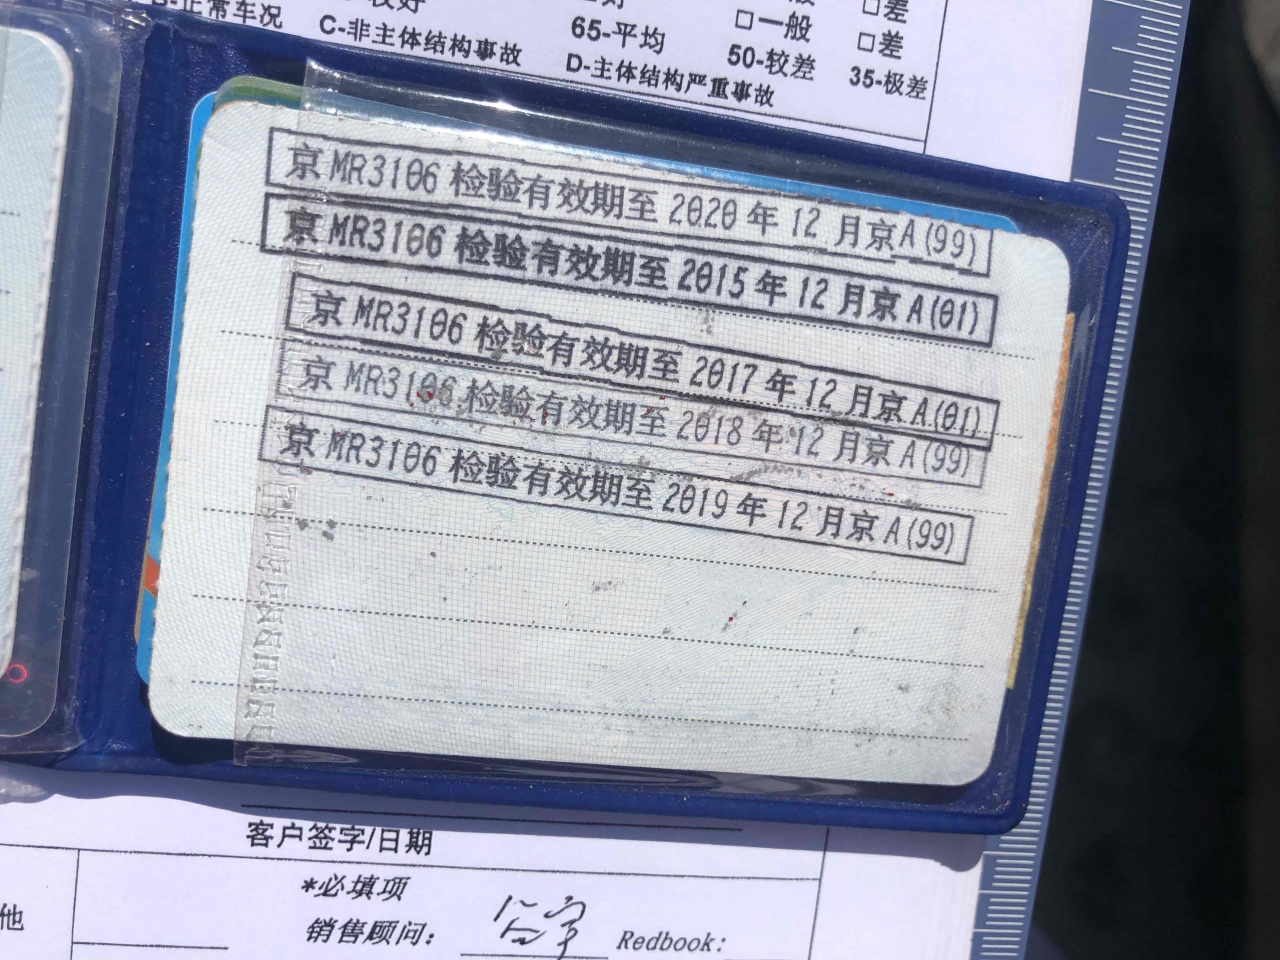 B-正常车况
C-非主体结构事故
65-平均
D-主体结构严重事故
□一般
50-较差
□差
□差
35-极差
京MR3106 检验有效期至 2020 年 12 月京A(99)
京MR3106 检验有效期至 2015 年 12 月京A(01)
京MR3106 检验有效期至 2017 年 12 月京A(01)
京MR3106 检验有效期至 2018 年 12 月京A(99)
京MR3106 检验有效期至 2019 年 12 月京A(99)
客户签字/日期
*必填项
他
销售顾问: Redbook: